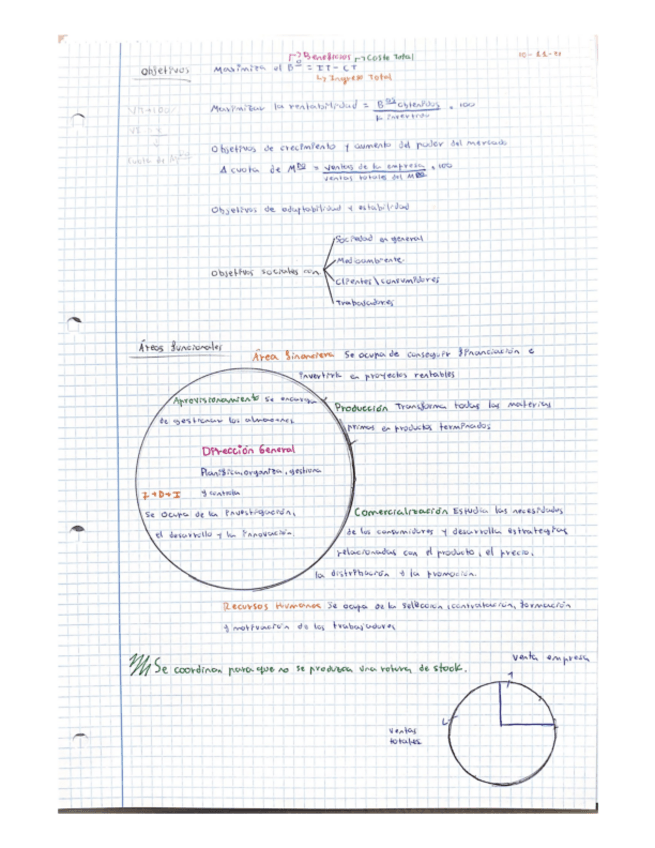 Beneficios Coste Total
Objetivos Maximiza el Bº = IT - CT
Ingreso Total
Maximizar la rentabilidad = Bºs obtenidos . 100
la inversión
Objetivos de crecimiento y aumento del poder del mercado
Δ cuota de Mdo = ventas de la empresa . 100
ventas totales del Mdo
Objetivos de adaptabilidad y estabilidad
Sociedad en general
Medioambiente.
Objetivos sociales con
Clientes\consumidores
Trabajadores
Áreas funcionales
Área financiera Se ocupa de conseguir financiación e
invertirla en proyectos rentables
Aprovisionamiento Se encarga
de gestionar los almacenes
Producción Transforma todas las materias
primas en productos terminados
Dirección General
Planifica, organiza, gestiona
y controla
I+D+I
Se ocupa de la investigación,
el desarrollo y la innovación.
Comercialización Estudia las necesidades
de los consumidores y desarrolla estrategias
relacionadas con el producto, el precio,
la distribución y la promoción.
Recursos Humanos Se ocupa de la selección, contratación, formación
y motivación de los trabajadores
Se coordinan para que no se produzca una rotura de stock.
venta empresa
ventas
totales